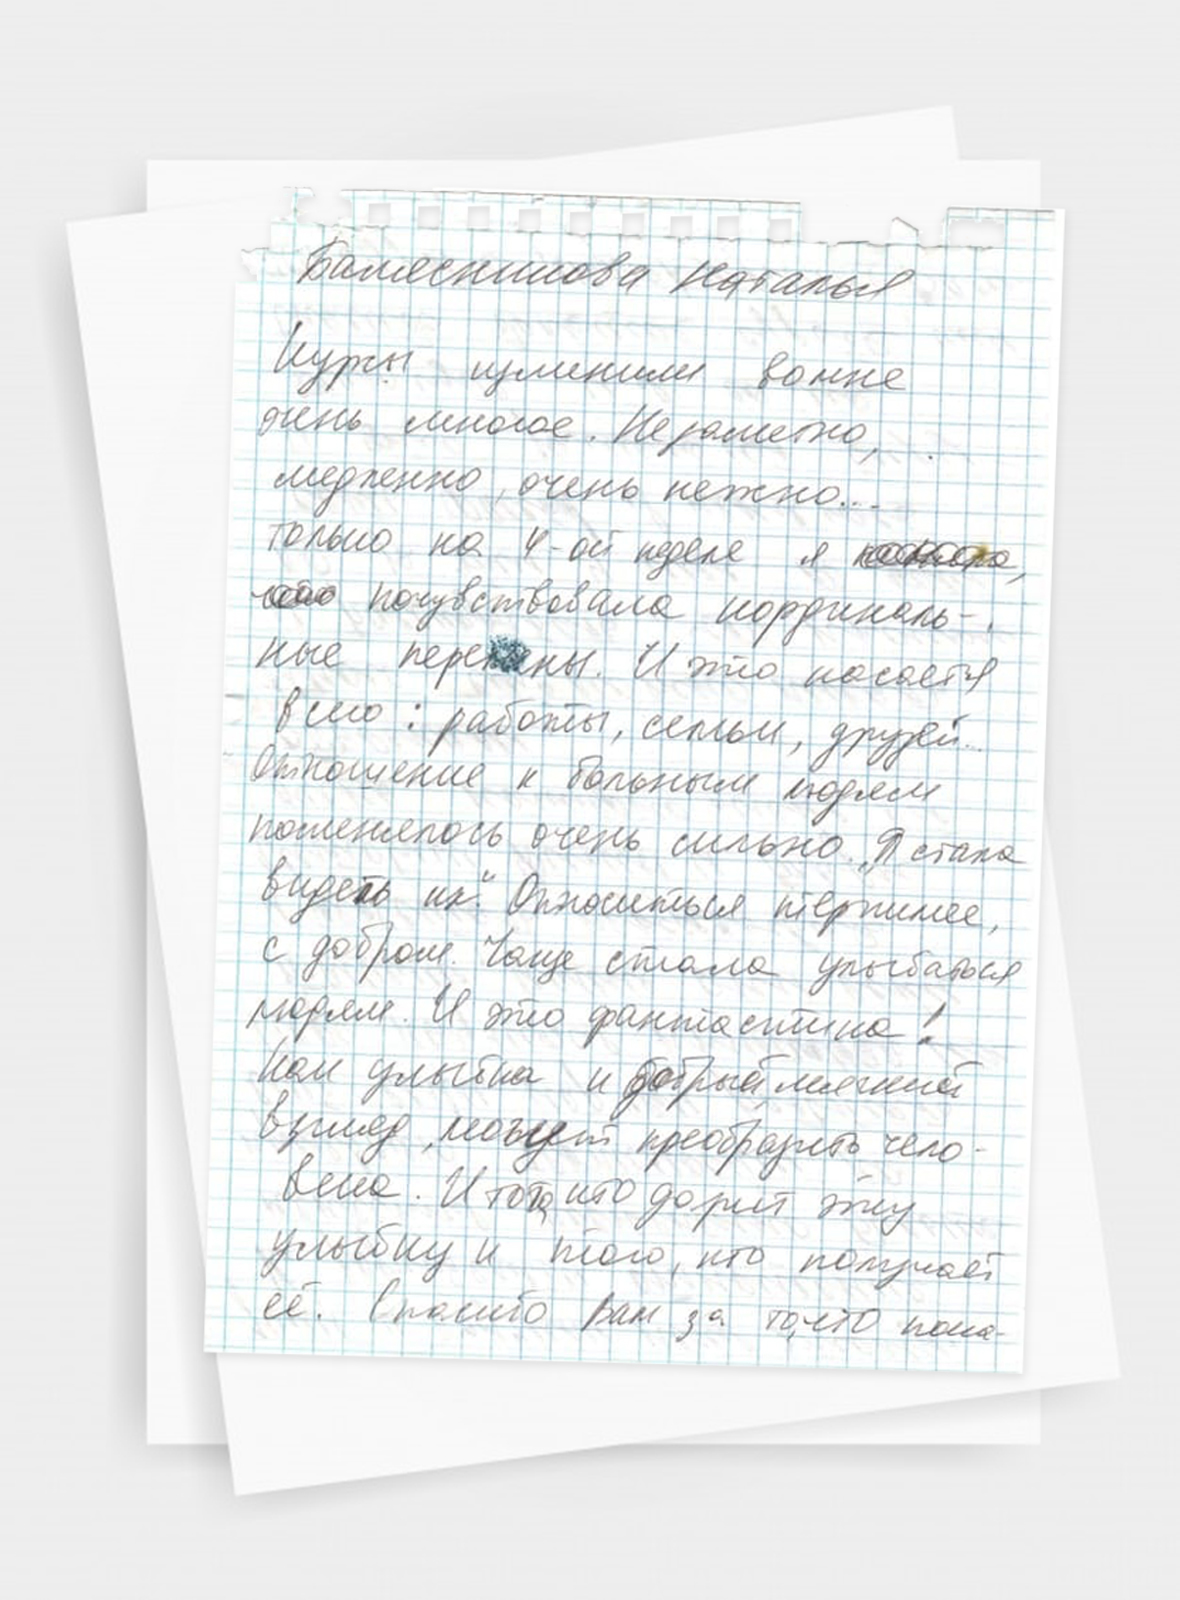 Балясникова Наталья
Курсы изменили во мне
очень многое. Незаметно,
медленно, очень нежно...
только на 4-ой неделе я
почувствовала кординаль-
ные перемены. И это касается
всего: работы, семьи, друзей...
Отношение к больным людям
поменялось очень сильно. „Я стала
видеть их“. Относиться терпимее,
с добром. Чаще стала улыбаться
людям. И это фантастика!
Как улыбка и добрый мягкий
взгляд, может преобразить чело-
века. И того кто дарит эту
улыбку и того, кто получает
её. Спасибо Вам за то, что пока-